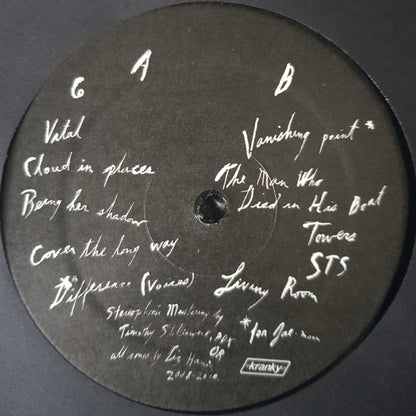 G A B
Vital
Cloud in places
Being her shadow
Cover the long way
*Difference (voices)
Vanishing point *
The Man Who
Died in His Boat
Towers
STS
Living Room
Stereophonic Mastering by
Timothy Stollenwerk, PDX
OR
all songs by Liz Harris
*for Jae-
·kranky·